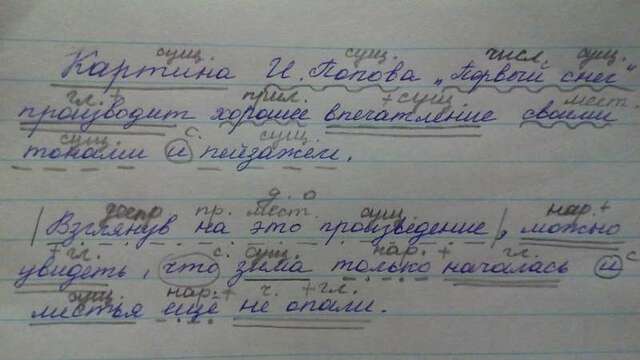 сущ. сущ. числ. сущ.
Картина И. Попова „Первый снег"
гл.+ прил. +сущ. мест.
производит хорошее впечатление своими
сущ. с. сущ.
тонами и пейзажем.
д. о
деепр пр. мест. сущ. нар.+
|Взглянув на это произведение|, можно
+гл. с. сущ. нар.+ гл. с
увидеть, что зима только началась и
сущ. нар.+ ч. +гл.
листья ещё не опали.